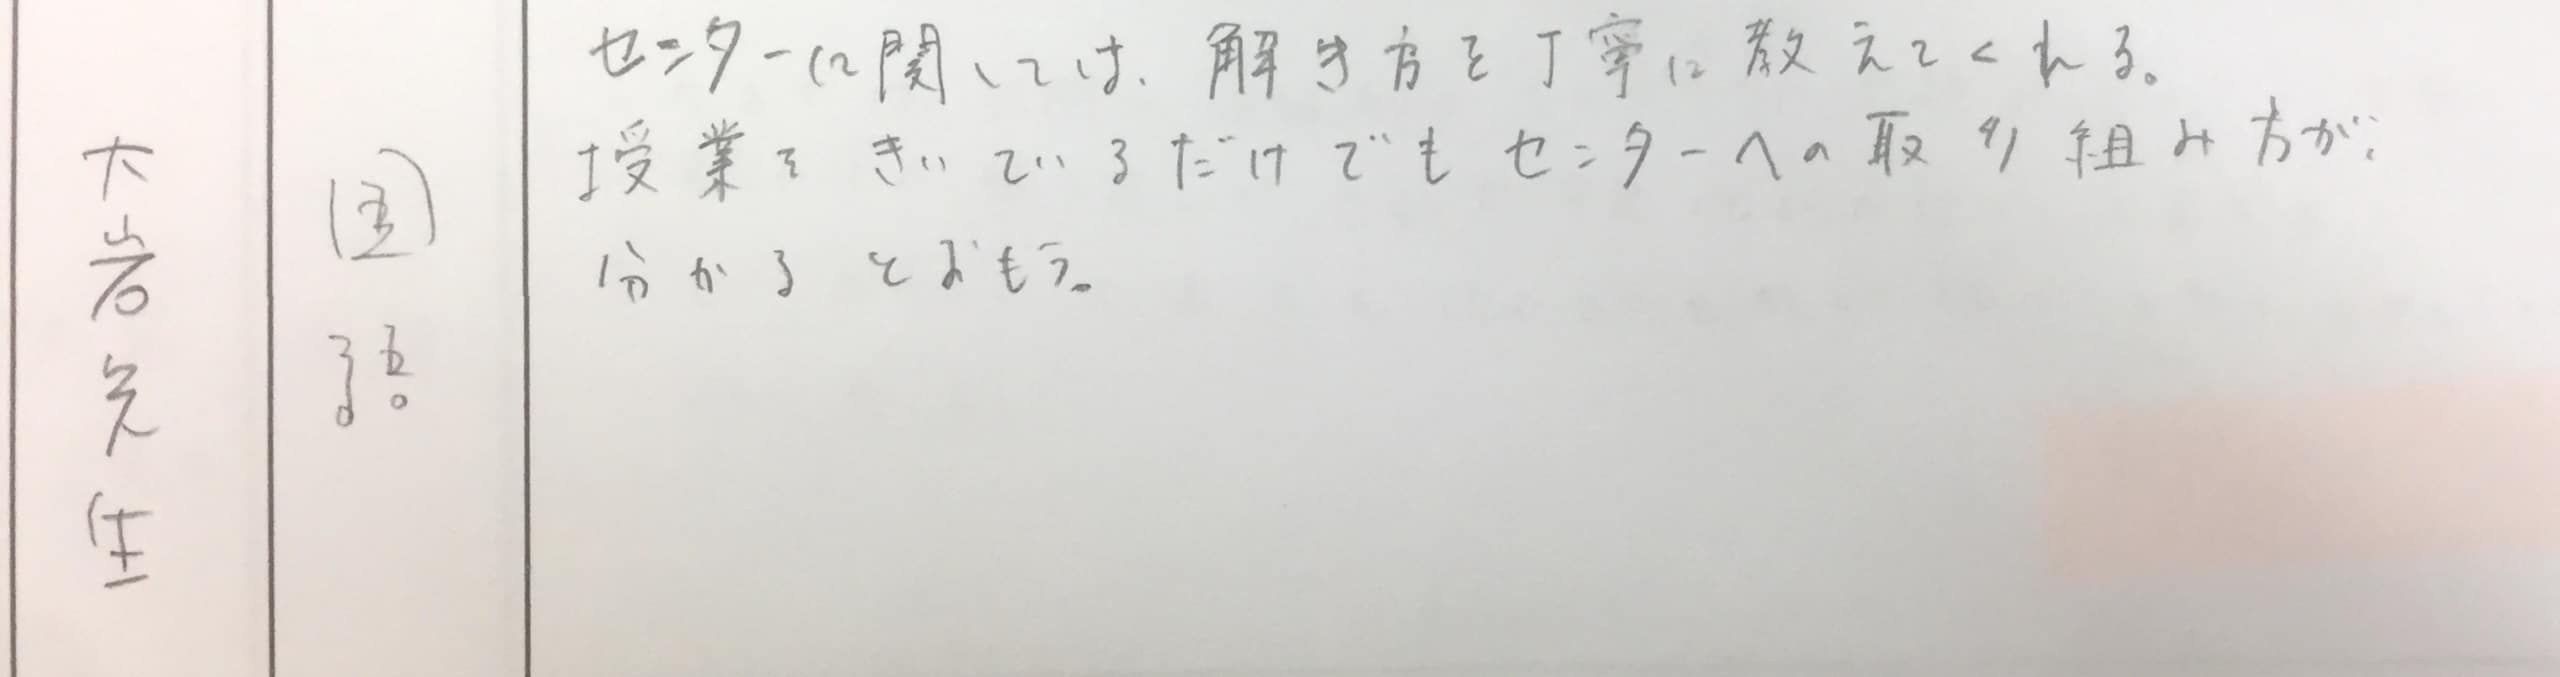 大岩先生
国語
センターに関しては、解き方を丁寧に教えてくれる。
授業をきいているだけでもセンターへの取り組み方が
分かるとおもう。